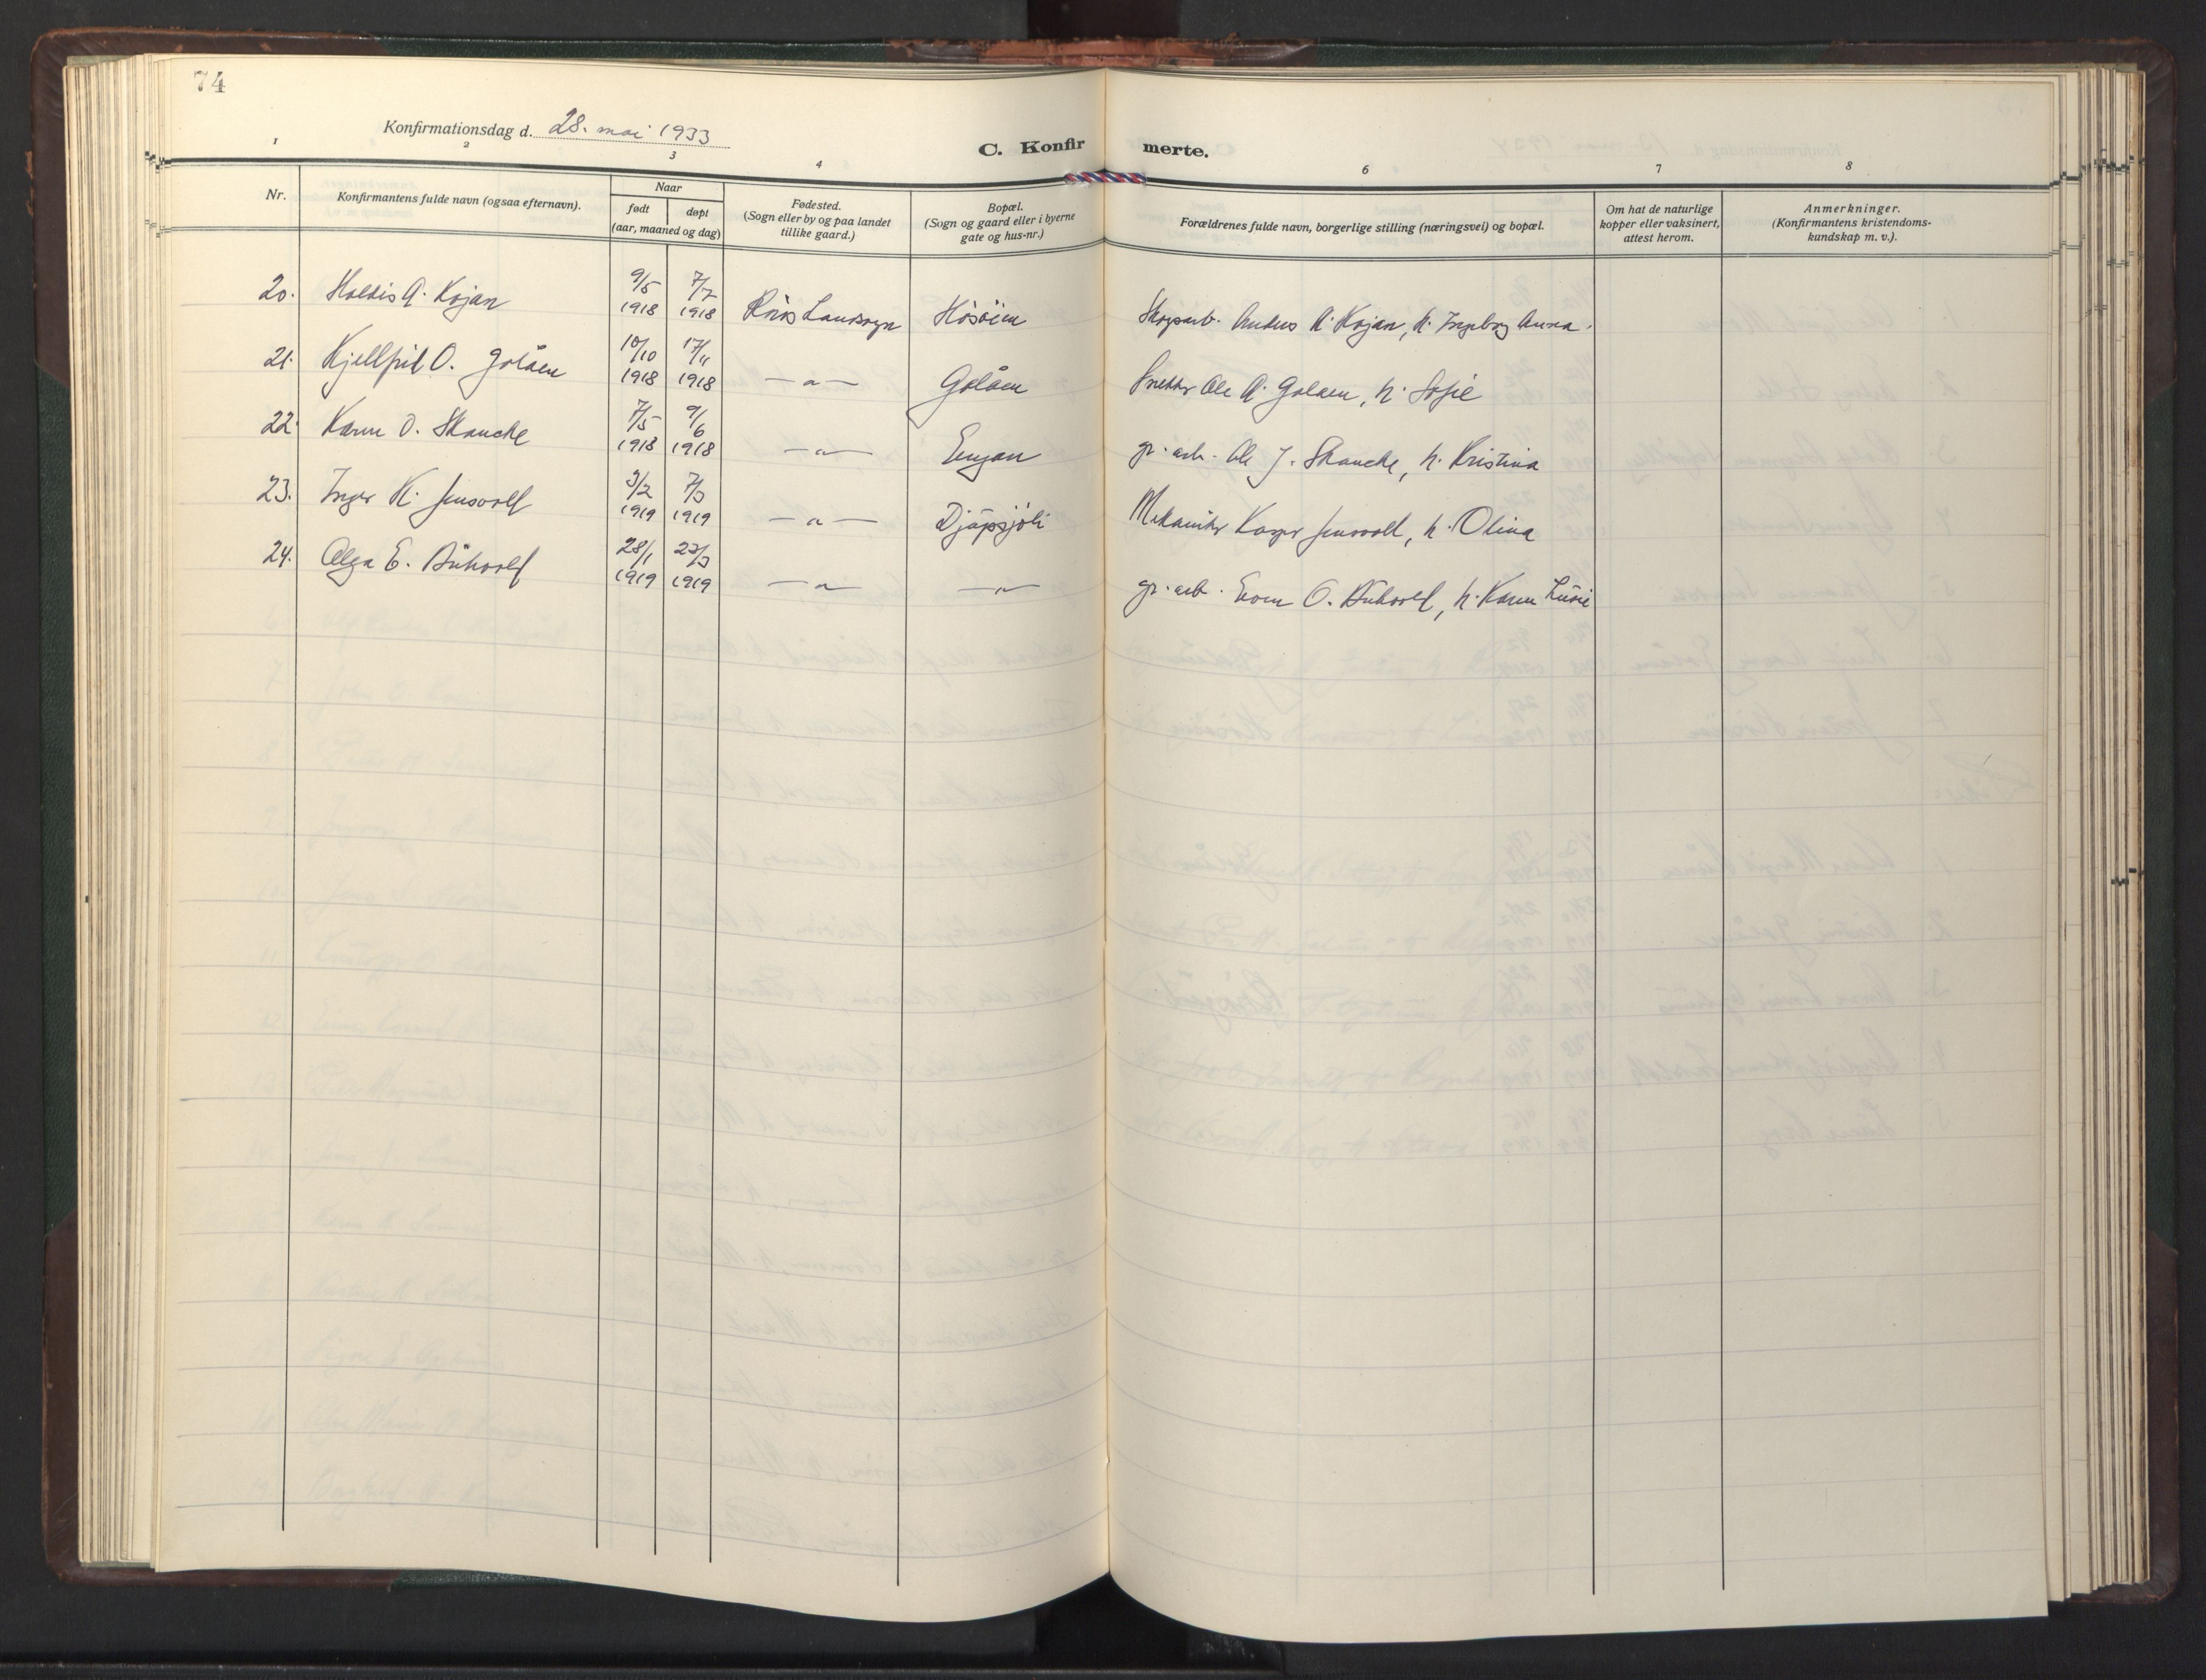 74
Konfirmationsdag d. 28. mai 1933
C. Konfirmerte.
1 2 3 4 6 7 8
Nr.
Konfirmantens fulde navn (ogsaa efternavn).
Naar
født døpt
(aar, maaned og dag)
Fødested.
(Sogn eller by og paa landet
tillike gaard.)
Bopæl.
(Sogn og gaard eller i byerne
gate og hus-nr.)
Forældrenes fulde navn, borgerlige stilling (næringsvei) og bopæl.
Om hat de naturlige
kopper eller vaksinert,
attest herom.
Anmerkninger.
(Konfirmantens kristendoms-
kundskap m. v.).
20. Haldis A. Kojan 9/5 1918 7/7 1918 Røros Landsogn Hösöien Skogsarb. Anders A. Kojan, h. Ingeborg Anna.
21. Kjellfrid O. Golåen 10/10 1918 17/11 1918 —"— Golåen Snekker Ole A. Golåen, h. Sofie
22. Karen O. Skancke 7/5 1918 9/6 1918 —"— Engan gr. arb. Ole J. Skancke, h. Kristina
23. Inger K. Jensvold 3/2 1919 7/3 1919 —"— Djüpsjöli Mekaniker Kasper Jensvold, h. Olina
24. Olga E. 28/1 1919 23/3 1919 —"— —"— gr. arb. Even O. h. Karen Lüvie